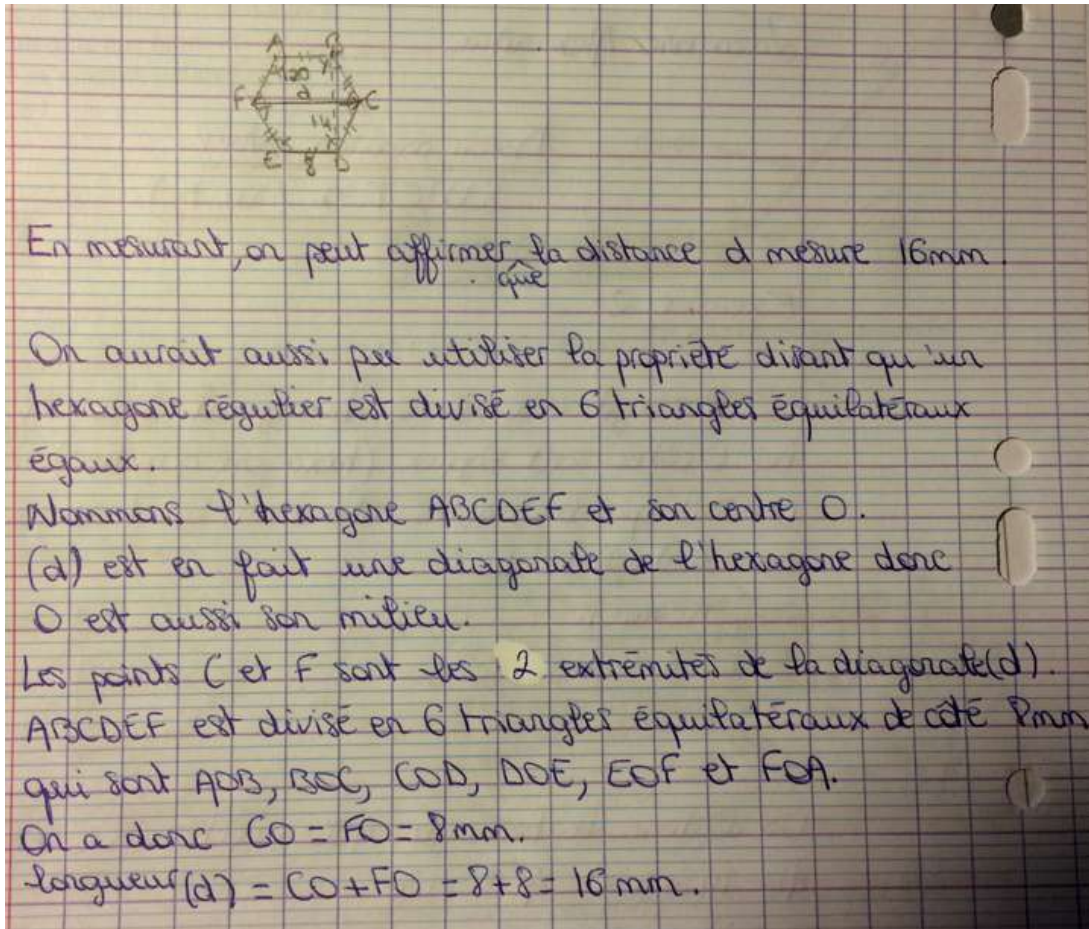 A B
120
F d C
14
E 8 D
En mesurant, on peut affirmer que la distance d mesure 16mm.
On aurait aussi pu utiliser la propriété disant qu'un
hexagone régulier est divisé en 6 triangles équilatéraux
égaux.
Nommons l'hexagone ABCDEF et son centre O.
(d) est en fait une diagonale de l'hexagone donc
O est aussi son milieu.
Les points C et F sont les 2 extrémités de la diagonale (d).
ABCDEF est divisé en 6 triangles équilatéraux de côté 8mm
qui sont AOB, BOC, COD, DOE, EOF et FOA.
On a donc CO = FO = 8mm.
longueur (d) = CO+FO = 8+8 = 16 mm.